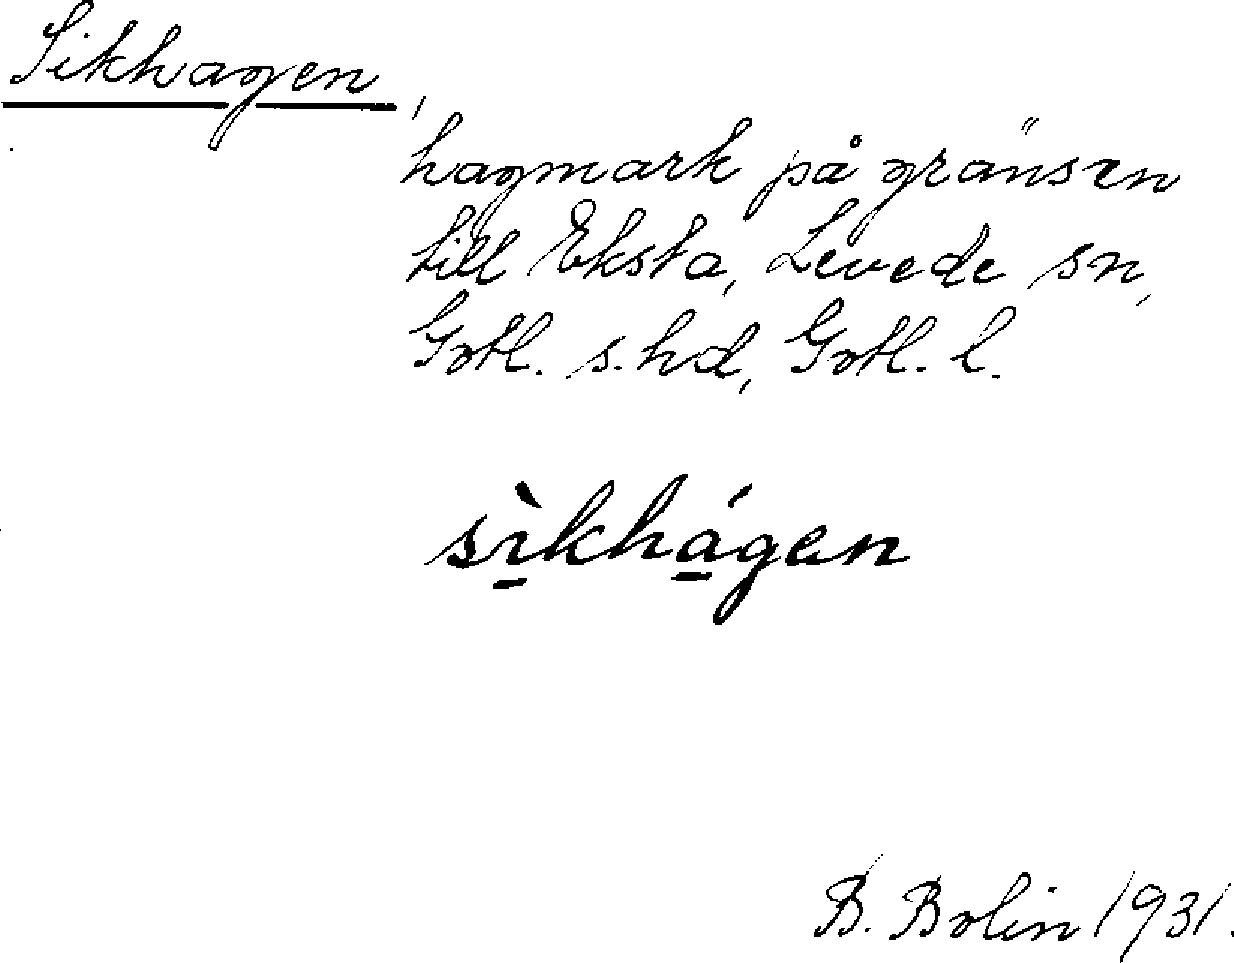 Sikhagen,
hagmark på gränsen
till Eksta, Levede sn,
Gotl. s. hd, Gotl. l.
sı̱̀khá̱gen
B. Bolin 1931.